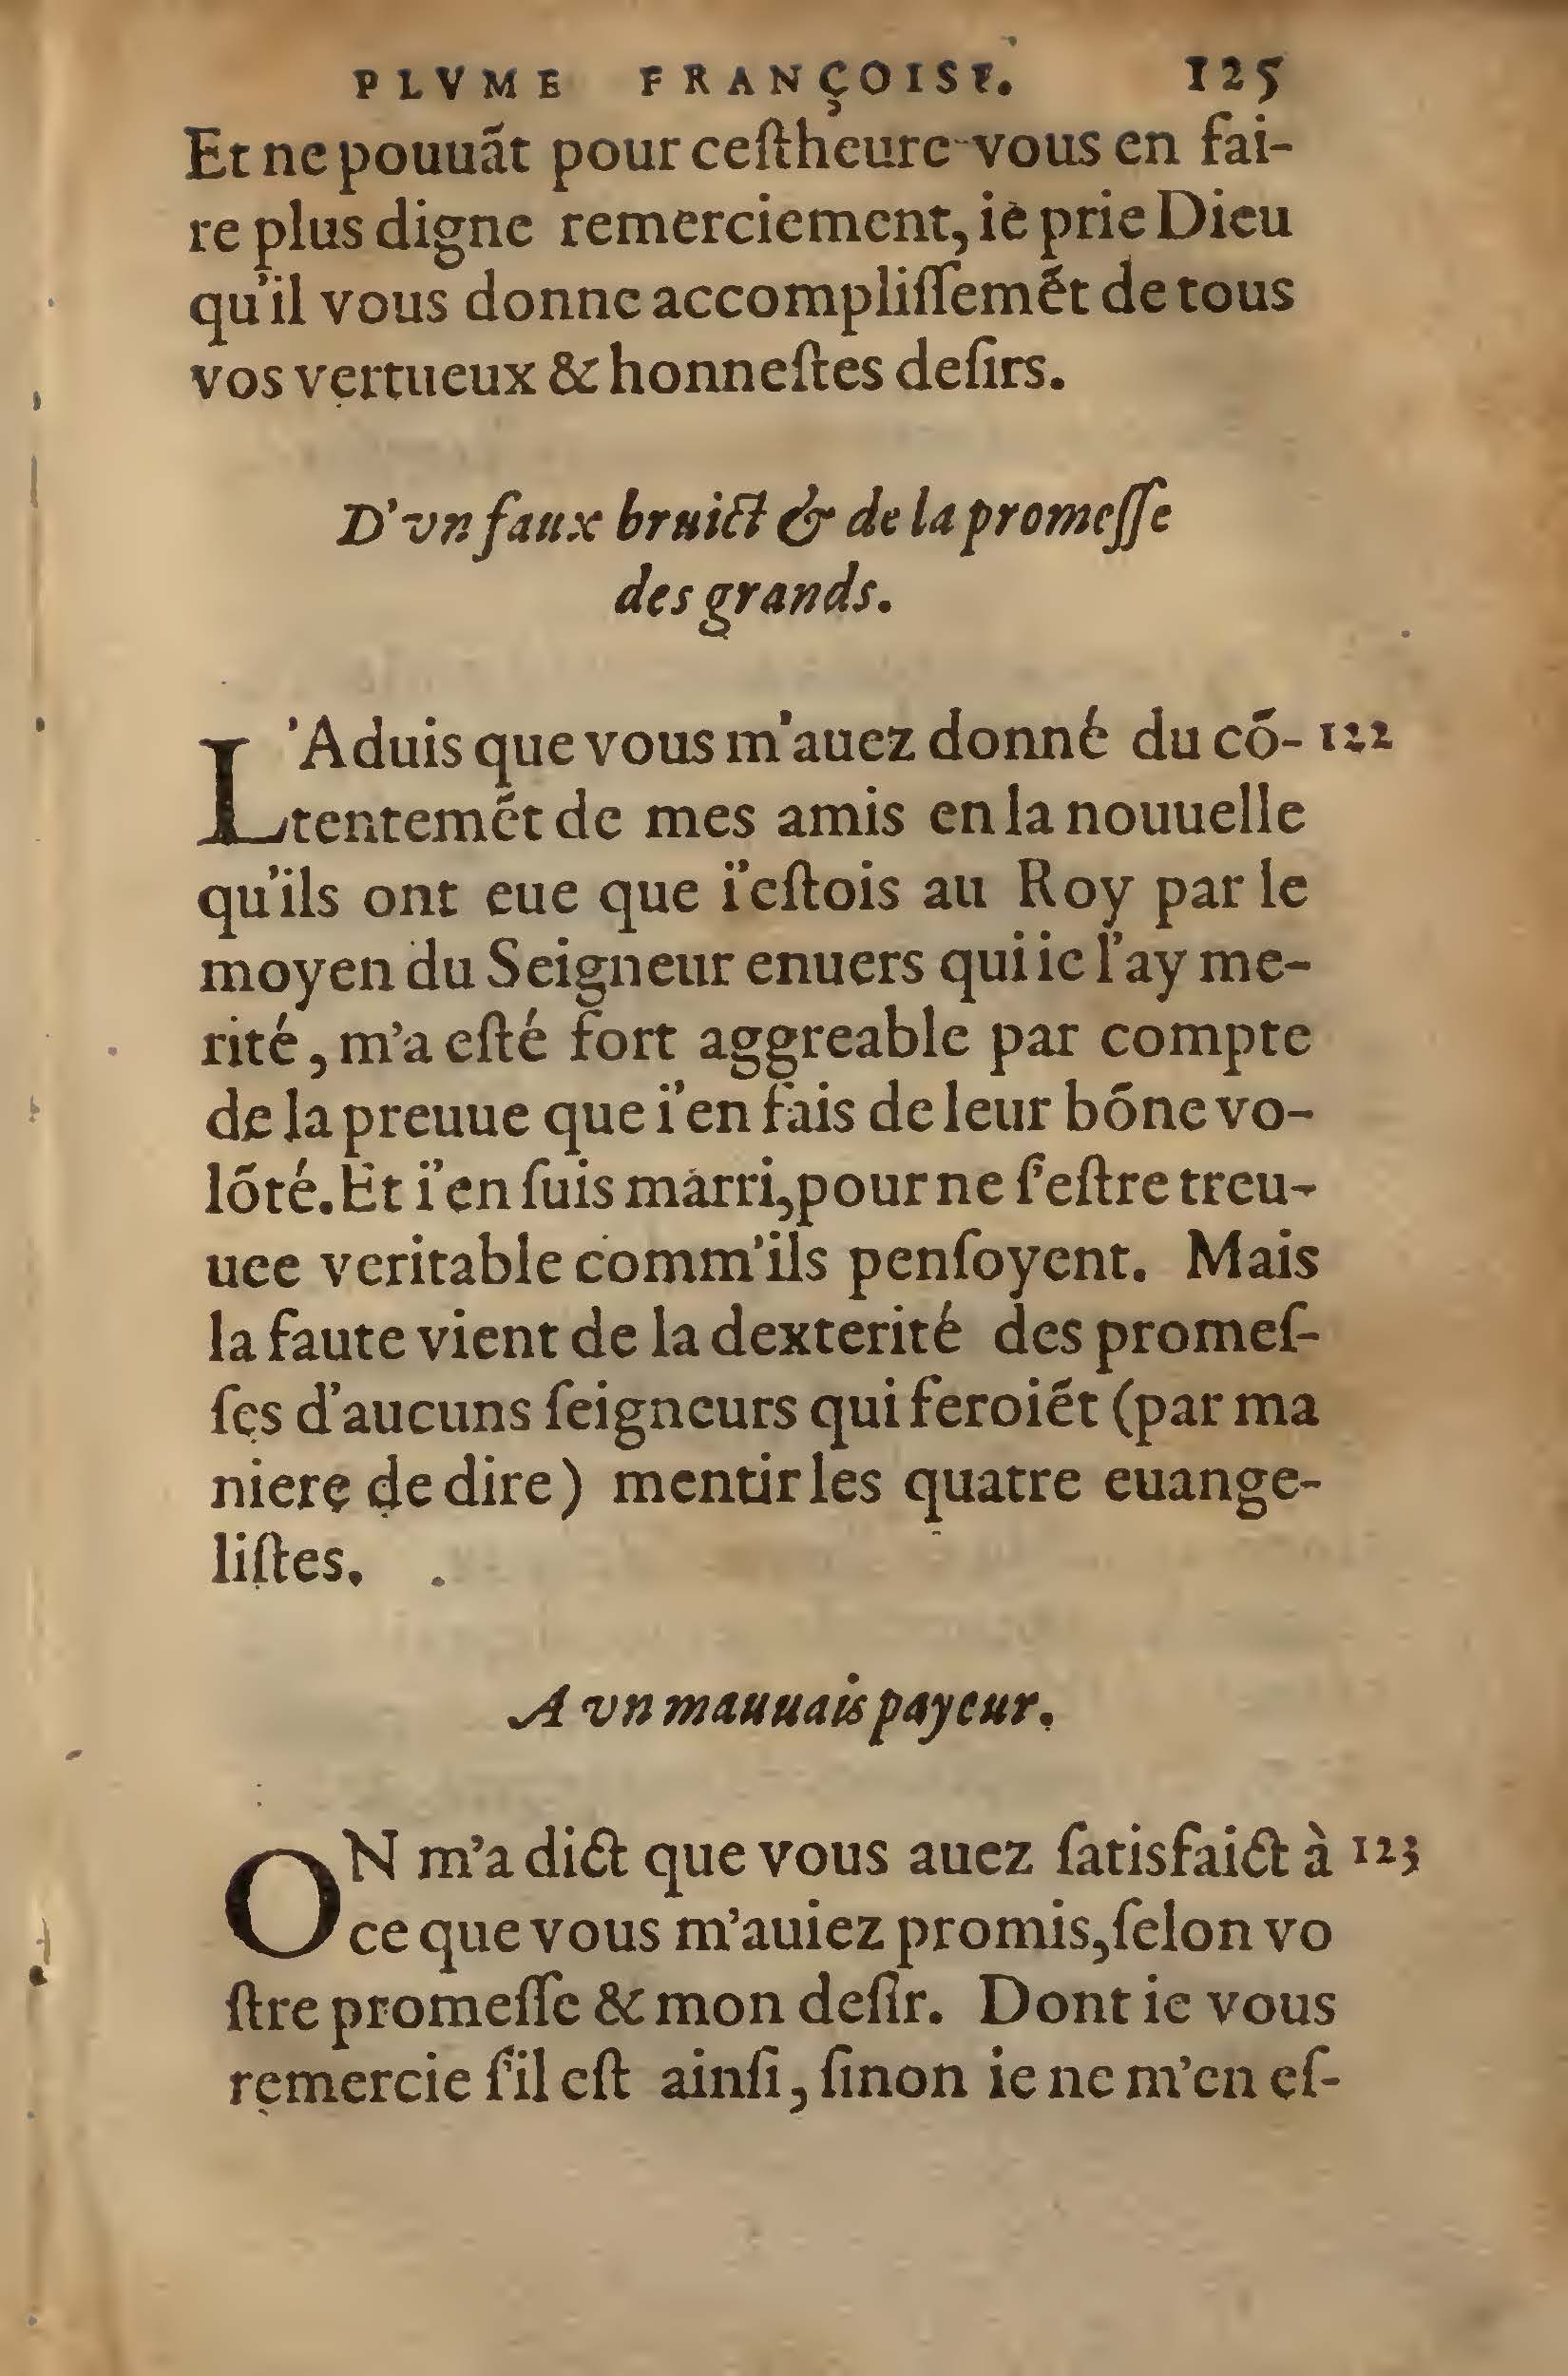 PLVME FRANÇOISE. 125
Et ne pouuãt pour ceſtheure vous en fai-
re plus digne remerciement, ie prie Dieu
qu'il vous donne accompliſſemẽt de tous
vos vertueux & honneſtes deſirs.
D'vn faux bruict & de la promeſſe
des grands.
L'Aduis que vous m'auez donné du cõ- 122
tentemẽt de mes amis en la nouuelle
qu'ils ont eue que i'eſtois au Roy par le
moyen du Seigneur enuers qui ie l'ay me-
rité, m'a eſté fort aggreable par compte
de la preuue que i'en fais de leur bõne vo-
lõté. Et i'en ſuis marri, pour ne ſ'eſtre treu-
uee veritable comm'ils penſoyent. Mais
la faute vient de la dexterité des promeſ-
ſes d'aucuns ſeigneurs qui feroiẽt (par ma
niere de dire) mentir les quatre euange-
liſtes.
A vn mauuais payeur.
ON m'a dict que vous auez ſatisfaict à 123
ce que vous m'auiez promis, ſelon vo
ſtre promeſſe & mon deſir. Dont ie vous
remercie ſ'il eſt ainſi, ſinon ie ne m'en eſ-